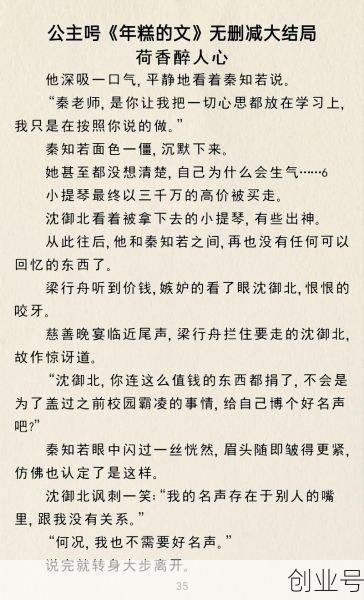 公主号《年糕的文》无删减大结局
荷香醉人心
他深吸一口气,平静地看着秦知若说。
“秦老师,是你让我把一切心思都放在学习上,
我只是在按照你说的做。”
秦知若面色一僵,沉默下来。
她甚至都没想清楚,自己为什么会生气……6
小提琴最终以三千万的高价被买走。
沈御北看着被拿下去的小提琴,有些出神。
从此往后,他和秦知若之间,再也没有任何可以
回忆的东西了。
梁行舟听到价钱,嫉妒的看了眼沈御北,恨恨的
咬牙。
慈善晚宴临近尾声,梁行舟拦住要走的沈御北,
故作惊讶道。
“沈御北,你连这么值钱的东西都捐了,不会是
为了盖过之前校园霸凌的事情,给自己博个好名声
吧?”
秦知若眼中闪过一丝恍然,眉头随即皱得更紧,
仿佛也认定了是这样。
沈御北讽刺一笑:“我的名声存在于别人的嘴
里,跟我没有关系。”
“何况,我也不需要好名声。”
说完就转身大步离开。
35
创业号